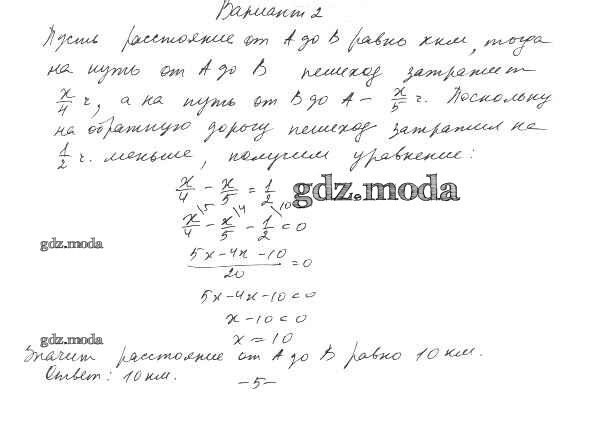 Вариант 2
Пусть расстояние от А до В равно x км, тогда
на путь от А до В пешеход затратит
x/4 ч, а на путь от В до А – x/5 ч. Поскольку
на обратную дорогу пешеход затратил на
1/2 ч. меньше, получим уравнение:
x/4 - x/5 = 1/2
gdz.moda
x/4 \5 - x/5 \4 - 1/2 \10 = 0
gdz.moda
(5x-4x-10)/20 = 0
5x-4x-10=0
x-10=0
gdz.moda
x = 10
Значит расстояние от А до В равно 10 км.
Ответ: 10 км.
-5-